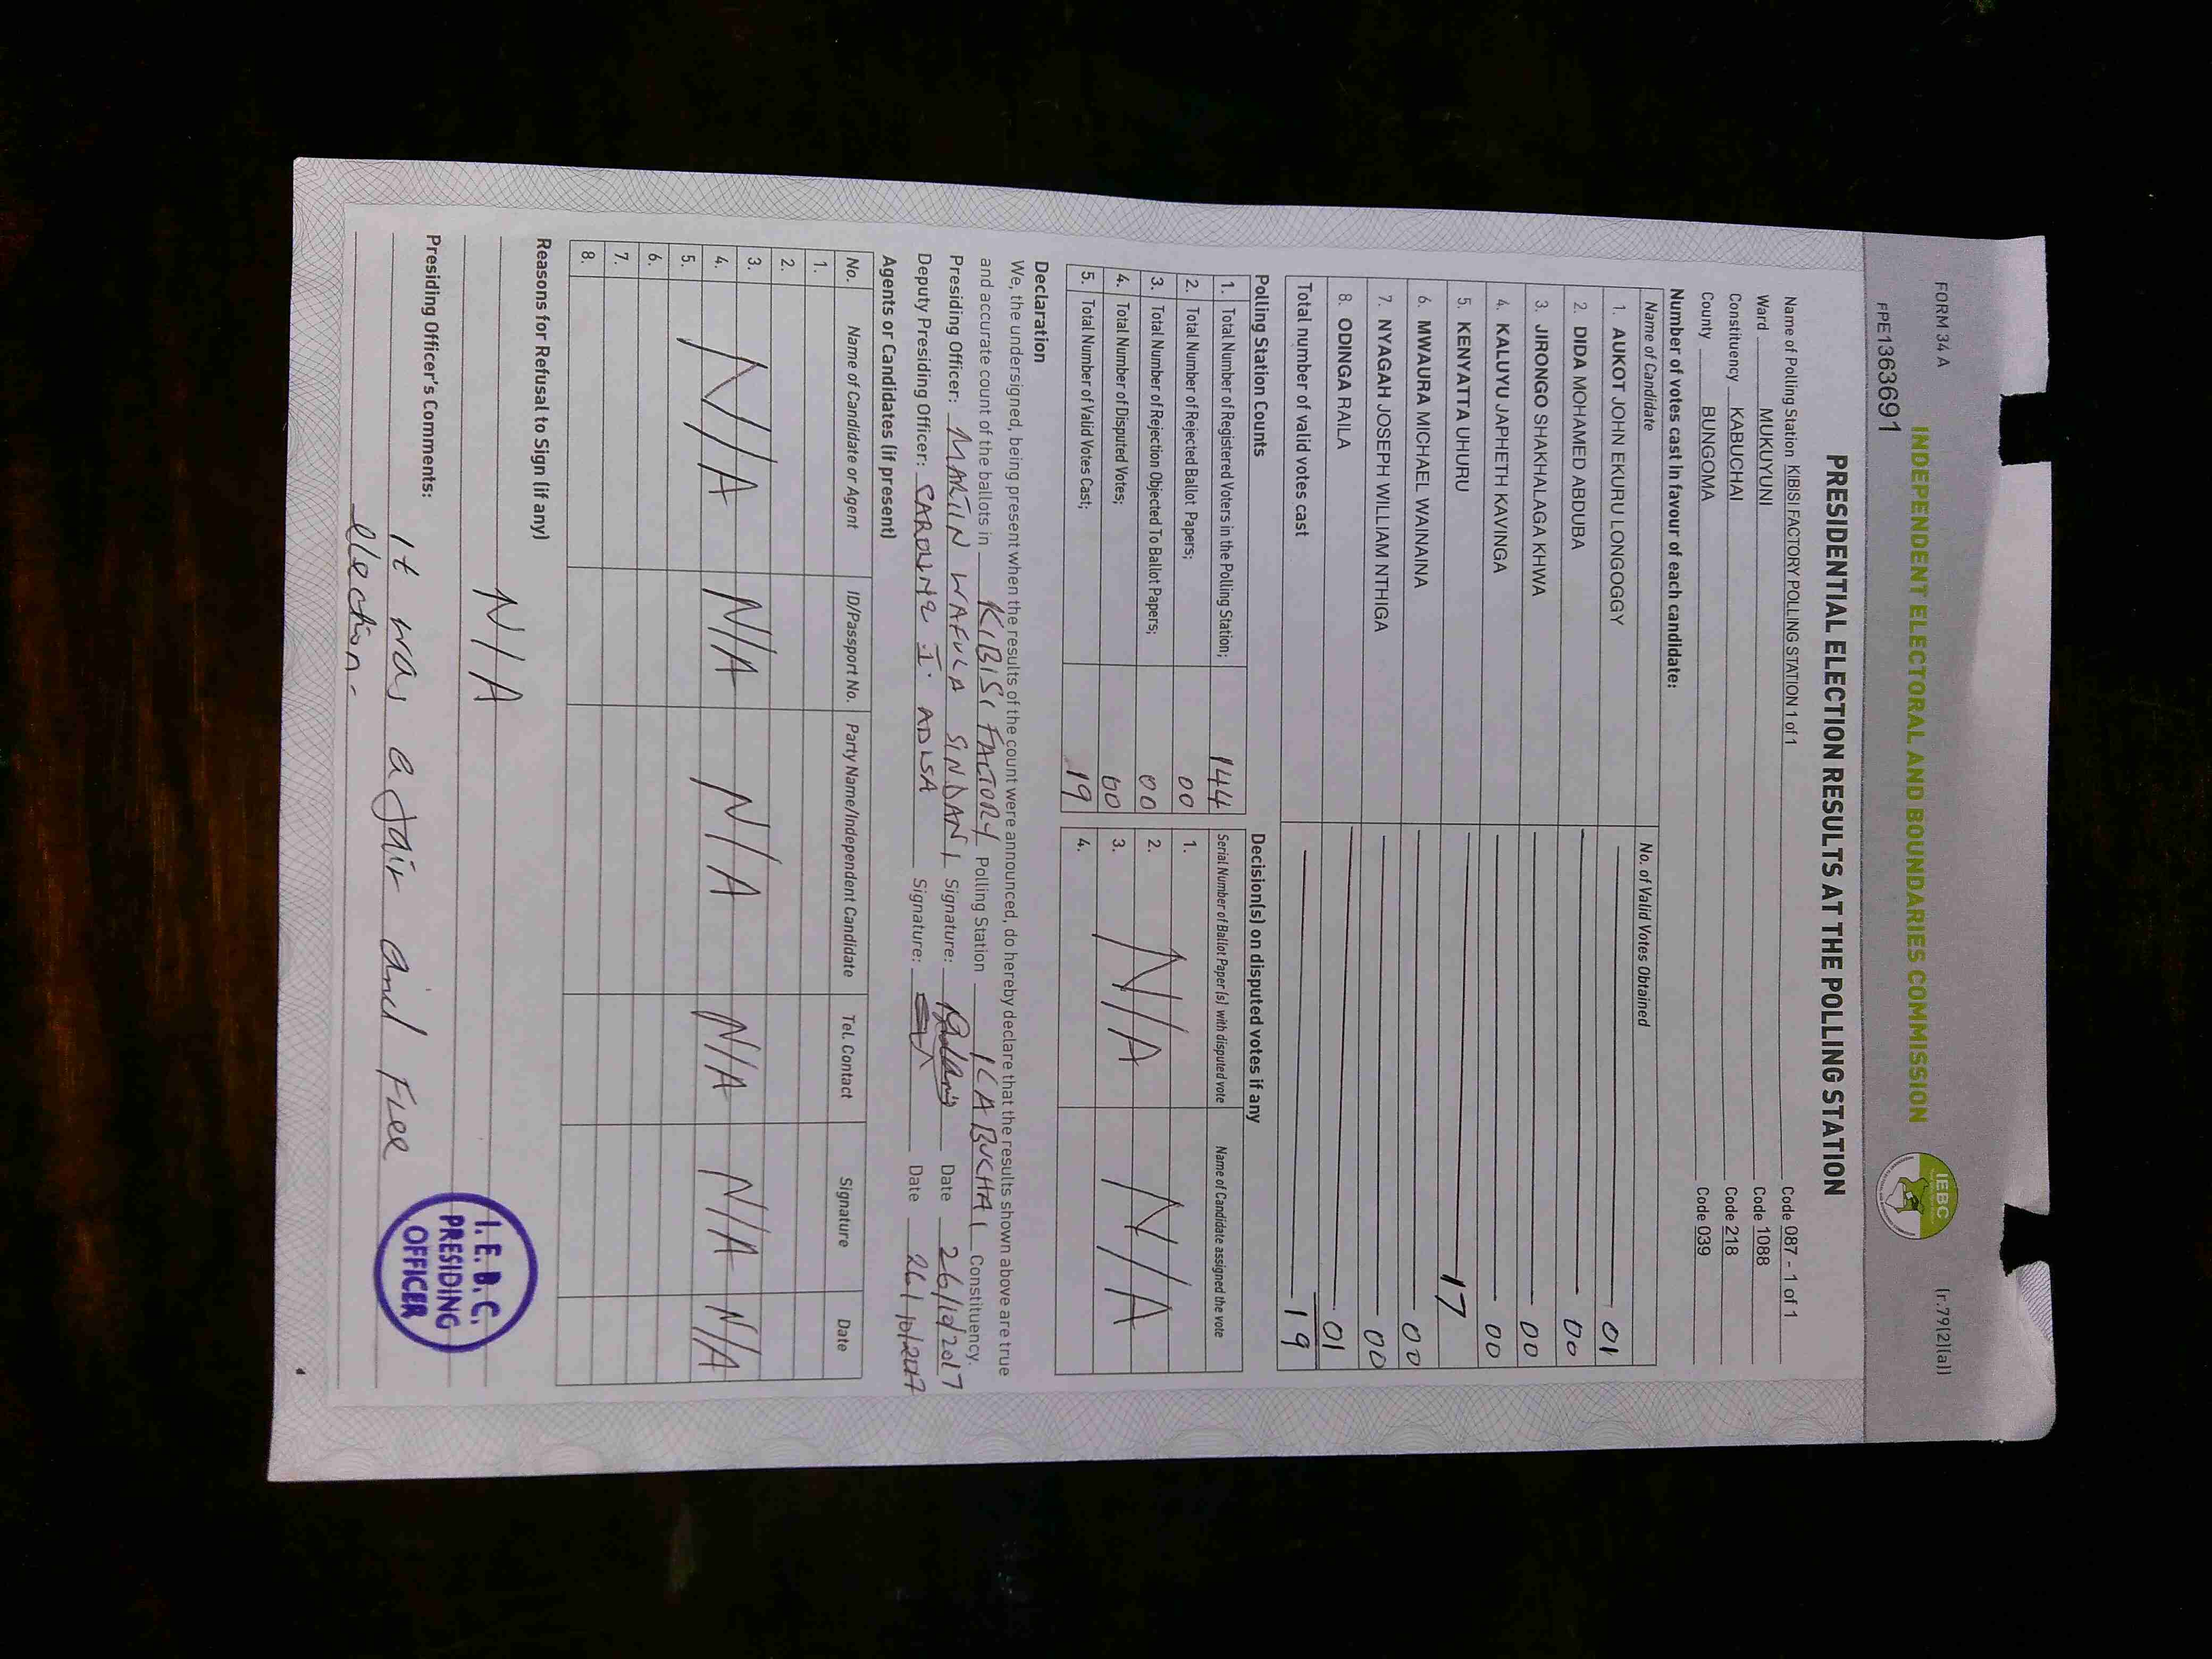 FORM 34 A
(r.79(2)(a))
INDEPENDENT ELECTORAL AND BOUNDARIES COMMISSION
IEBC
PE1363691
PRESIDENTIAL ELECTION RESULTS AT THE POLLING STATION
Name of Polling Station KIBISI FACTORY POLLING STATION 1 of 1 Code 087 - 1 of 1
Ward MUKUYUNI Code 1088
Constituency KABUCHAI Code 218
County BUNGOMA Code 039
Number of votes cast in favour of each candidate:
Name of Candidate No. of Valid Votes Obtained
1. AUKOT JOHN EKURU LONGOGGY 01
2. DIDA MOHAMED ABDUBA 00
3. JIRONGO SHAKHALAGA KHWA 00
4. KALUYU JAPHETH KAVINGA 00
5. KENYATTA UHURU 17
6. MWAURA MICHAEL WAINAINA 00
7. NYAGAH JOSEPH WILLIAM NTHIGA 00
8. ODINGA RAILA 01
Total number of valid votes cast 19
Polling Station Counts
1. Total Number of Registered Voters in the Polling Station; 144
2. Total Number of Rejected Ballot Papers; 00
3. Total Number of Rejection Objected To Ballot Papers; 00
4. Total Number of Disputed Votes; 00
5. Total Number of Valid Votes Cast; 19
Decision(s) on disputed votes if any
Serial Number of Ballot Paper(s) with disputed vote Name of Candidate assigned the vote
1.
2. N/A N/A
3.
4.
Declaration
We, the undersigned, being present when the results of the count were announced, do hereby declare that the results shown above are true
and accurate count of the ballots in KIBISI FACTORY Polling Station KABUCHAI Constituency.
Presiding Officer: MARTIN WAFULA SINDANI Signature: Date 26/10/2017
Deputy Presiding Officer: CAROLINE I. Signature: Date 26/10/2017
Agents or Candidates (if present)
No. Name of Candidate or Agent ID/Passport No. Party Name/Independent Candidate Tel. Contact Signature Date
1.
2.
3.
4. N/A N/A N/A N/A N/A N/A
5.
6.
7.
8.
Reasons for Refusal to Sign (if any)
N/A
Presiding Officer's Comments: It was a fair and Free
election.
I.E.B.C.
PRESIDING
OFFICER